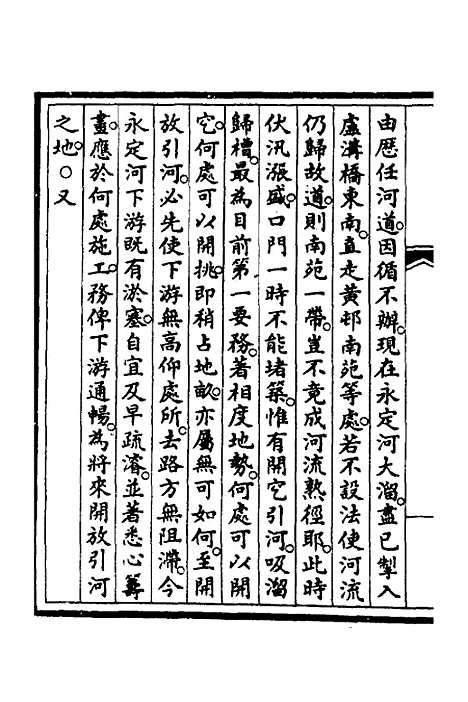 由歷任河道。因循不辦。現在永定河大溜。盡已掣入
盧溝橋東南。直走黃邨南苑等處。若不設法使河流
仍歸故道。則南苑一帶。豈不竟成河流熟徑耶。此時
伏汛漲盛。口門一時不能堵築。惟有開宂引河。吸溜
歸槽。最為目前第一要務。著相度地勢。何處可以開
宂。何處可以開挑。即稍占地畝。亦屬無可如何。至開
放引河。必先使下游無高仰處所。去路方無阻滯。今
永定河下游既有淤塞。自宜及早疏濬。並著悉心籌
畫。應於何處施工。務俾下游通暢。為將來開放引河
之地。○又